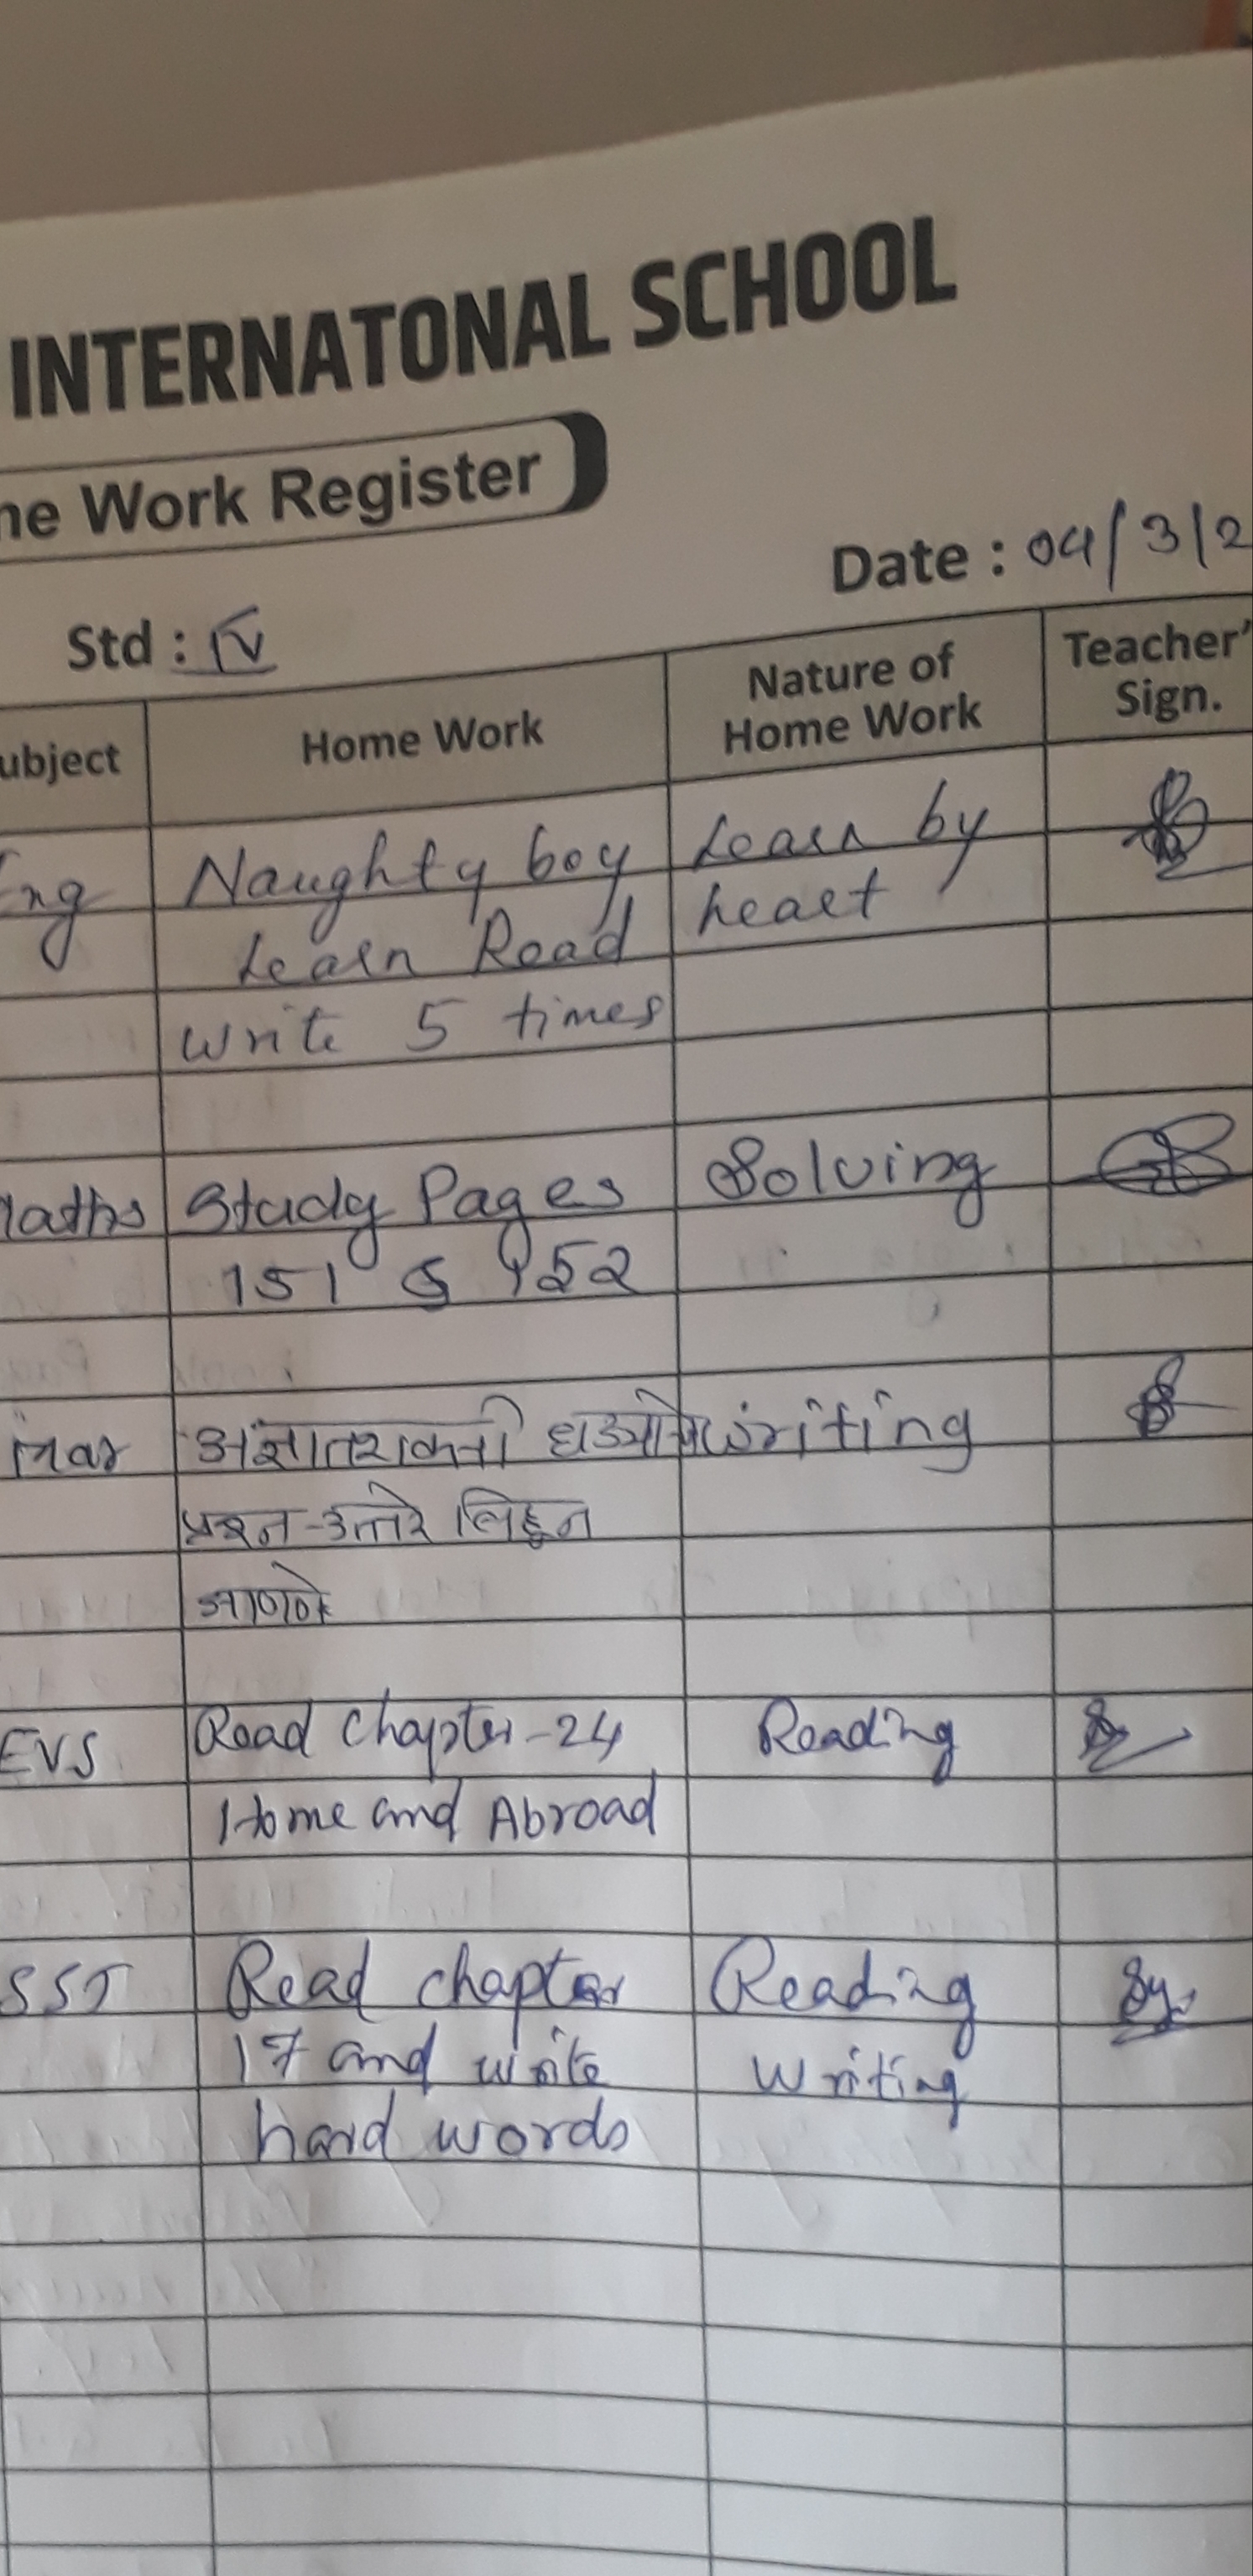 INTERNATONAL SCHOOL
ne Work Register
Date : 04/3/2
Std : IV
ubject Home Work Nature of Home Work Teacher' Sign.
Eng Naughty boy Learn by
Learn Read heart
write 5 times
Maths Study Pages Solving
151 & 152
Mar writing
प्रश्न-उत्तरे लिहून
आणणे
EVS Read Chapter-24 Reading
Home and Abroad
SST Read chapter Reading
17 and write writing
hard words